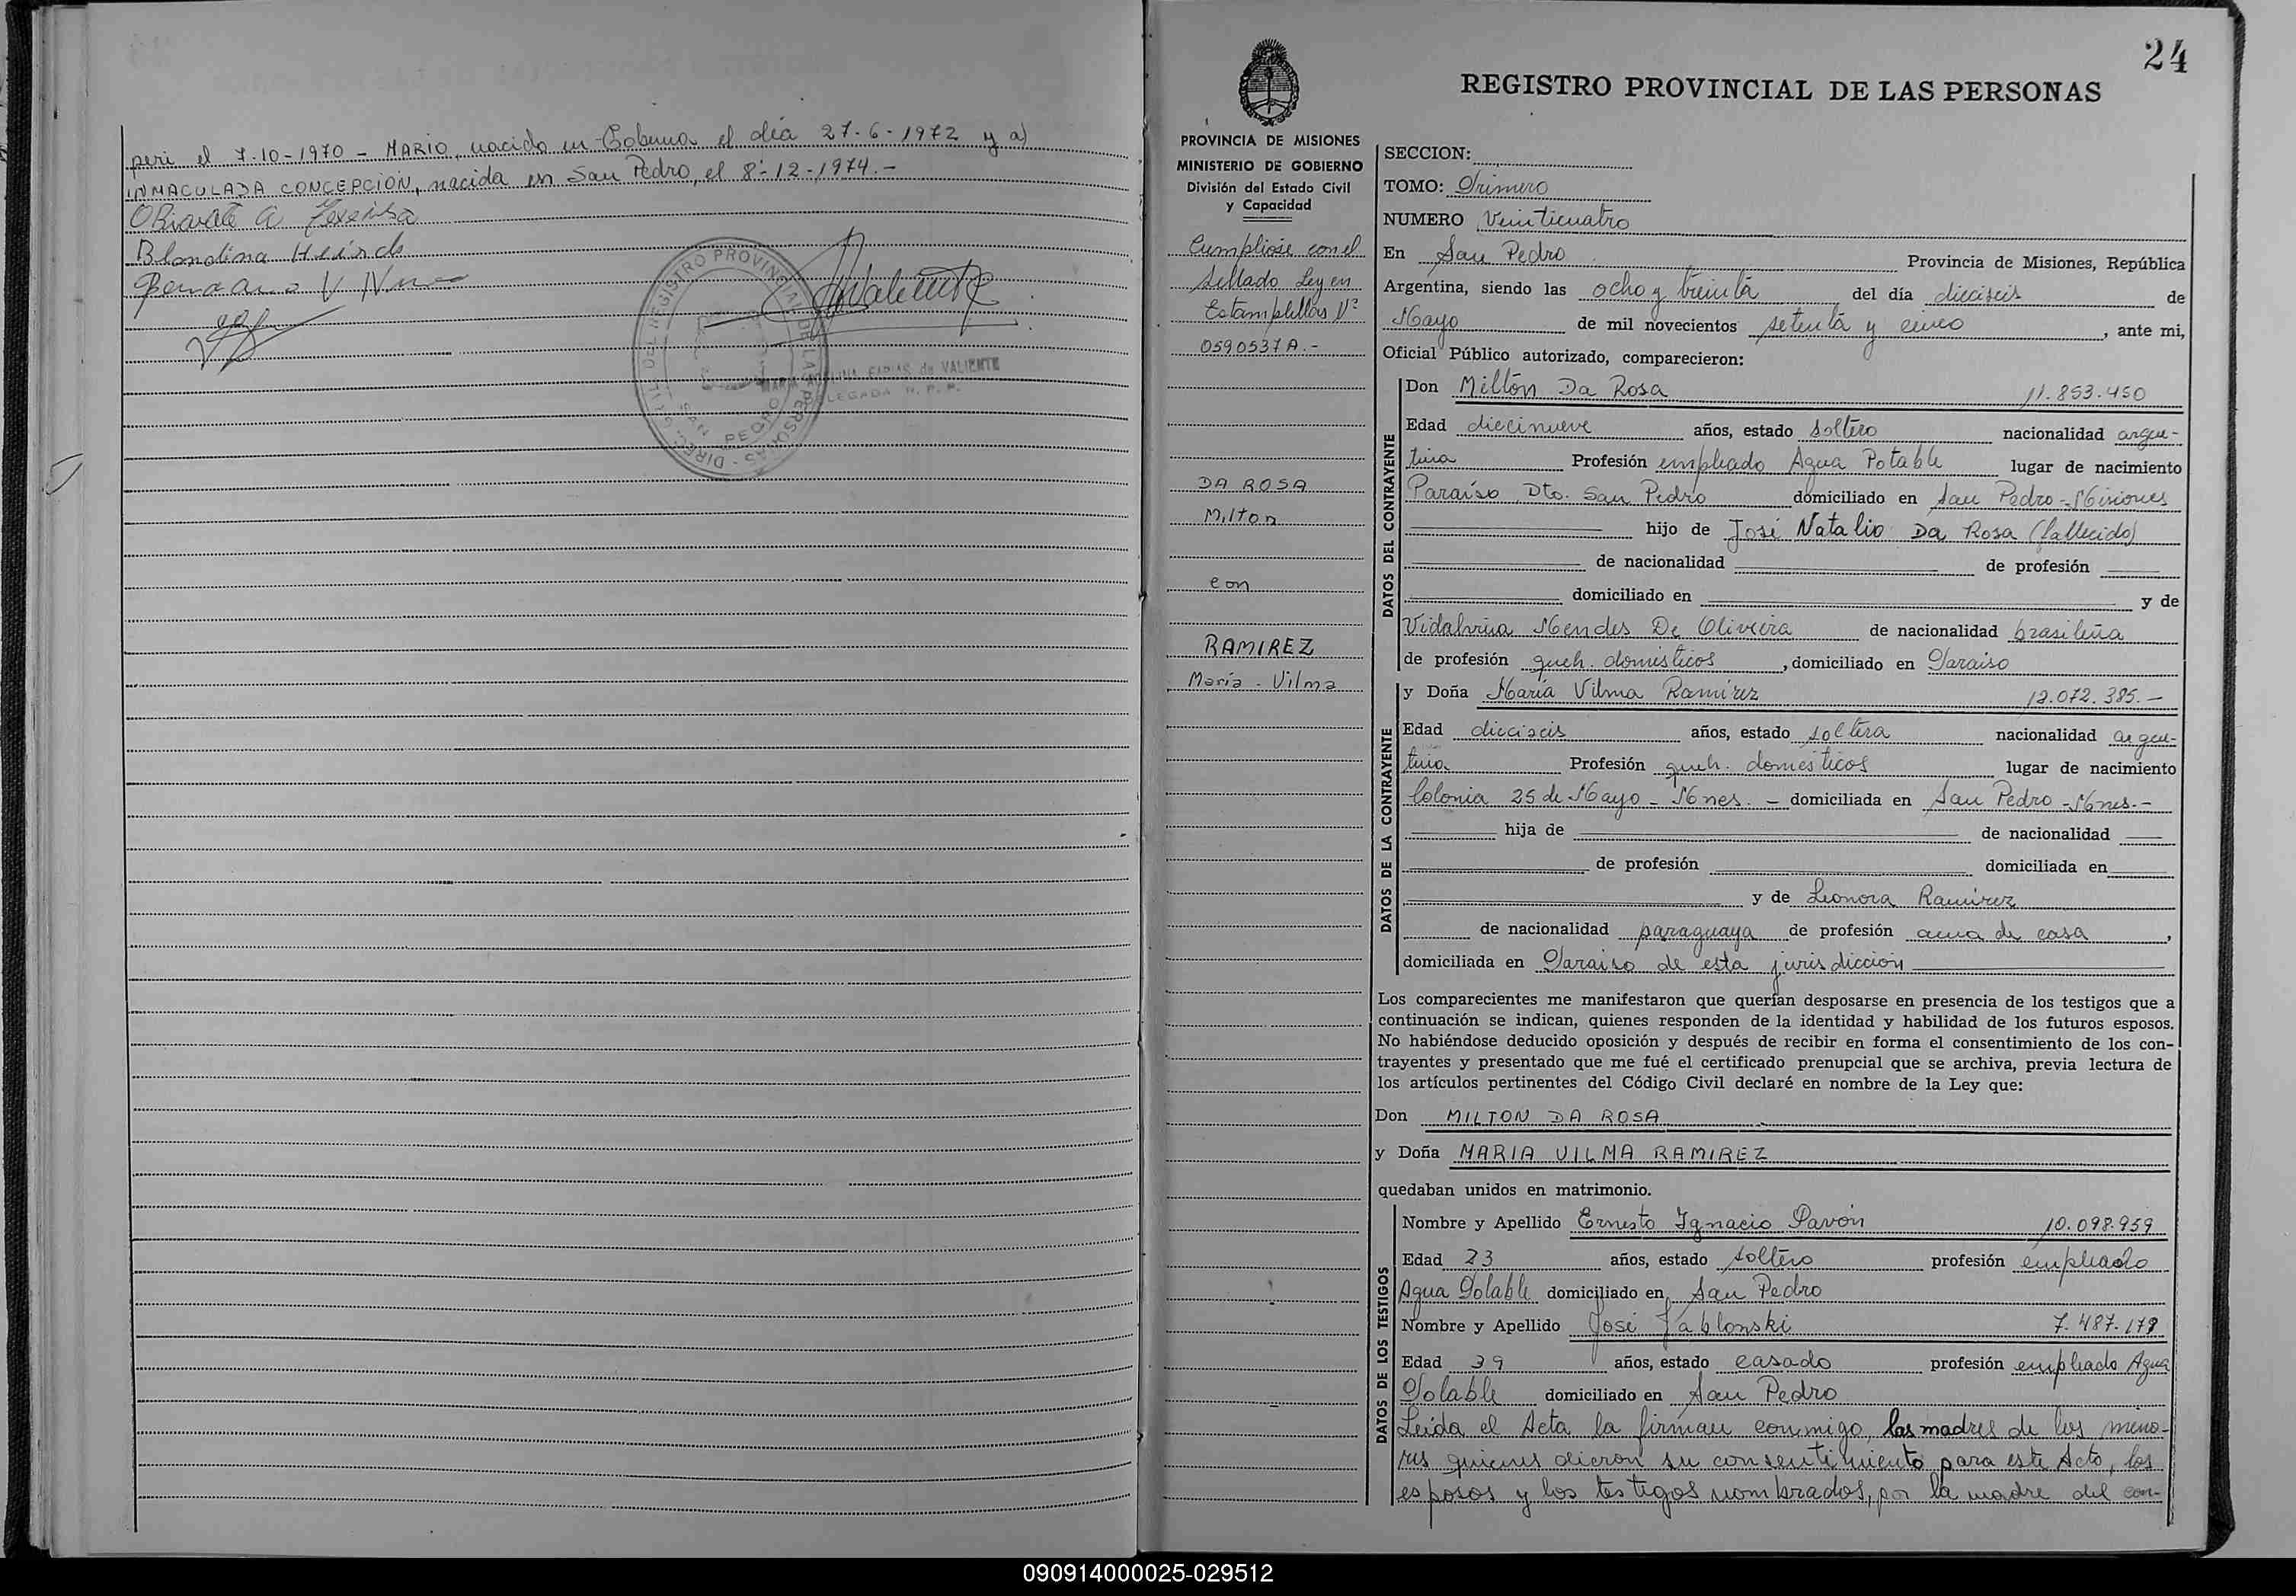 peri el 7-10-1970 - MARIO, nacido en Coberna el día 27-6-1972 y a)
INMACULADA CONCEPCION, nacida en San Pedro, el 8-12-1974.-
Blondina
MARIA FARIAS de VALIENTE
DELEGADA R. P. P.
SAN PEDRO
24
REGISTRO PROVINCIAL DE LAS PERSONAS
PROVINCIA DE MISIONES
MINISTERIO DE GOBIERNO
División del Estado Civil
y Capacidad
Cumpliose con el
Sellado Ley en
Estampillas Nº
0590537A.-
DA ROSA
Milton
con
RAMIREZ
María - Vilma
SECCION:
TOMO: Primero
NUMERO Veinticuatro
En San Pedro Provincia de Misiones, República
Argentina, siendo las ocho y treinta del día dieciseis de
Mayo de mil novecientos setenta y cinco, ante mi,
Oficial Público autorizado, comparecieron:
DATOS DEL CONTRAYENTE
Don Miltón Da Rosa 11.853.450
Edad diecinueve años, estado soltero nacionalidad argen-
tina Profesión empleado Agua Potable lugar de nacimiento
Paraíso Dto. San Pedro domiciliado en San Pedro - Misiones
hijo de José Natalio Da Rosa (fallecido)
de nacionalidad de profesión
domiciliado en y de
Vidalvina Mendes De Oliveira de nacionalidad brasileña
de profesión queh. domésticos, domiciliado en Paraiso
DATOS DE LA CONTRAYENTE
y Doña María Vilma Ramírez 12.072.385.-
Edad dieciseis años, estado soltera nacionalidad argen-
tina Profesión queh. domésticos lugar de nacimiento
Colonia 25 de Mayo - Mnes. - domiciliada en San Pedro - Mnes.-
hija de de nacionalidad
de profesión domiciliada en
y de Leonora Ramírez
de nacionalidad paraguaya de profesión ama de casa,
domiciliada en Paraiso de esta jurisdicción
Los comparecientes me manifestaron que querían desposarse en presencia de los testigos que a
continuación se indican, quienes responden de la identidad y habilidad de los futuros esposos.
No habiéndose deducido oposición y después de recibir en forma el consentimiento de los con-
trayentes y presentado que me fué el certificado prenupcial que se archiva, previa lectura de
los artículos pertinentes del Código Civil declaré en nombre de la Ley que:
Don MILTON DA ROSA
y Doña MARIA VILMA RAMIREZ
quedaban unidos en matrimonio.
DATOS DE LOS TESTIGOS
Nombre y Apellido Ernesto Ignacio Pavón 10.098.959
Edad 23 años, estado soltero profesión empleado
Agua Potable domiciliado en San Pedro
Nombre y Apellido José Jablonski 7.487.179
Edad 39 años, estado casado profesión empleado Agua
Potable domiciliado en San Pedro
Leída el Acta la firman conmigo, las madres de los meno-
res quienes dieron su consentimiento para este Acto, los
esposos y los testigos nombrados, por la madre del con-
090914000025-029512